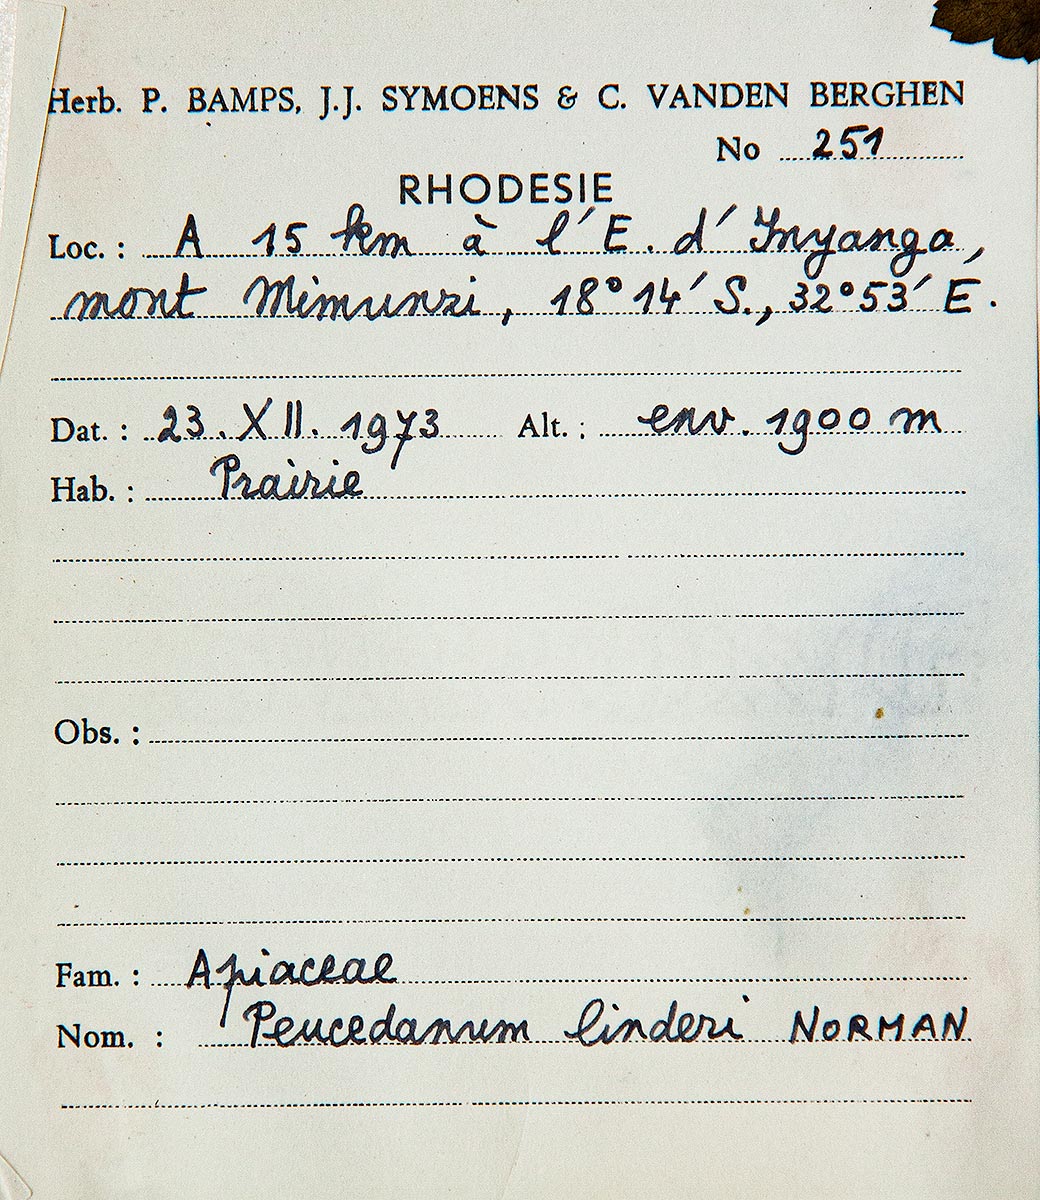 Herb. P. BAMPS, J.J. SYMOENS & C. VANDEN BERGHEN
No 251
RHODESIE
Loc. : A 15 km à l'E. d'Inyanga,
mont Mimunzi, 18°14' S., 32°53' E.
Dat. : 23.XII.1973 Alt. : env. 1900 m
Hab. : Prairie
Obs. :
Fam. : Apiaceae
Nom. : Peucedanum linderi NORMAN